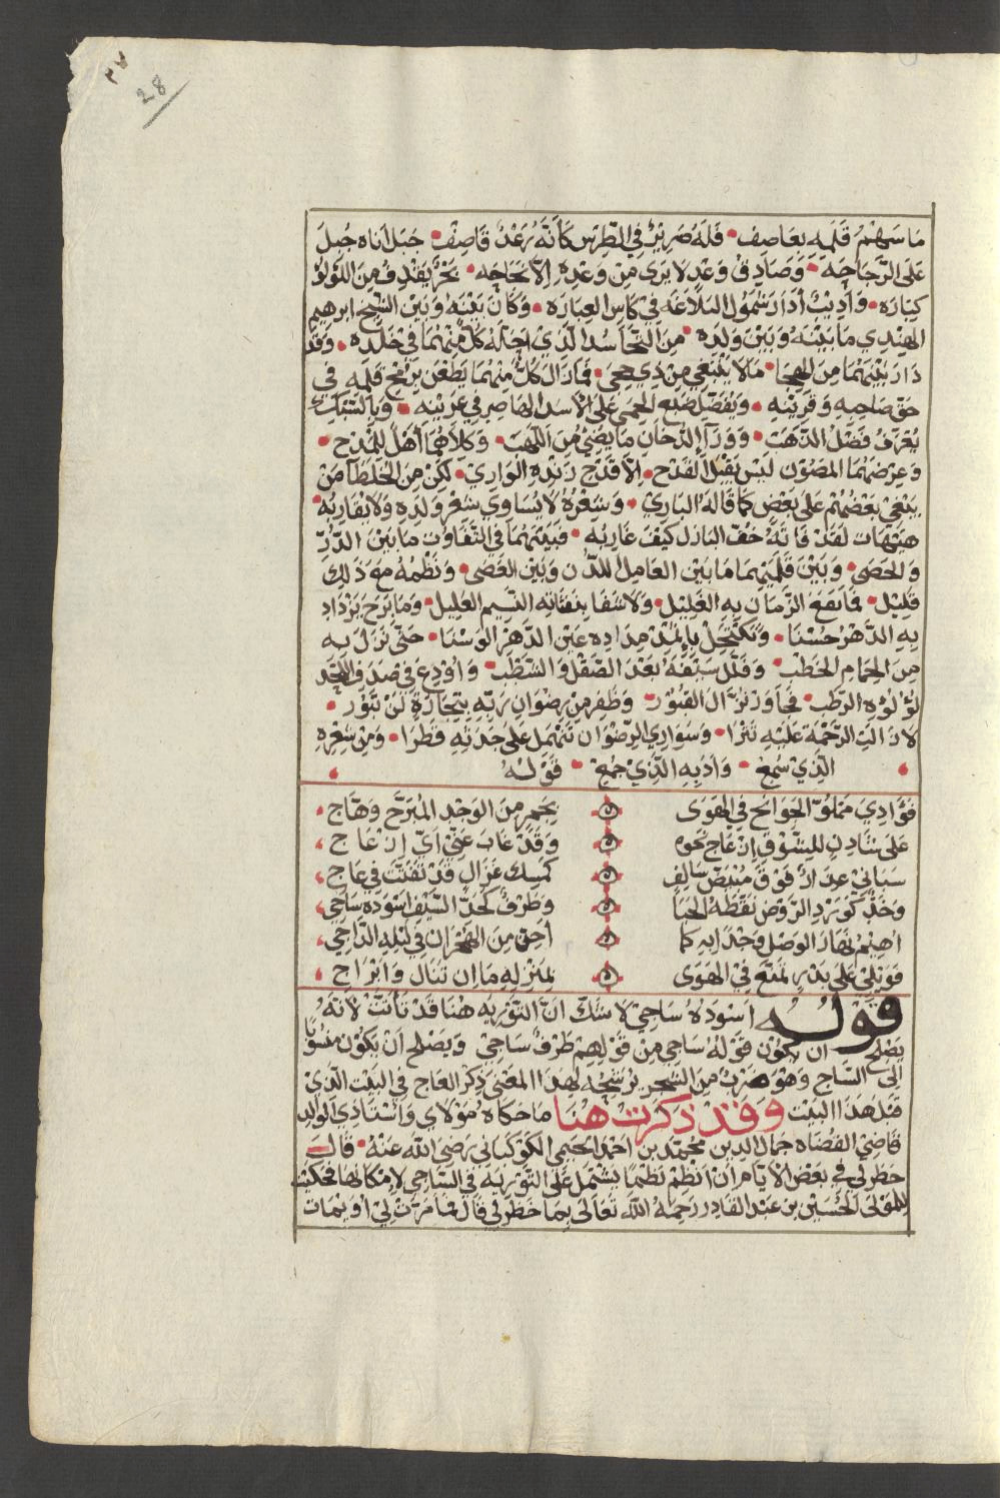 ٢٧
28
ما سهم قلمه بعاصف • فله صرير في الطرس كأنه رعد قاصف • جبل اناه جبل
على الزجاجه • وصادق وعد لا يرى من وعده الا نجاجه • بحر يقذف من اللولو
كباره • وأديب أدار شمول البلاغه في كاس العباره • وكان بينه وبين الشيخ ابرهيم
الهندي ما بينه وبين ولده • من التحاسد الذي احله كل منهما في خلده • وقد
دار بينهما من الهجا • ما لا ينبغي من ذي حجى • فمازال كل منهما يطعن برمح قلمه في
حق صاحبه وقرينه • ويفضل ضبع الحمى على الأسد الهاصر في عرينه • وبالسبك
يعرف فضل الذهب • وورآ الدخان ما يضئ من اللهب • وكلاهما أهل للمدح •
وعرضهما المصون ليس يقبل القدح • الا قدح زنده الواري • لكن من الخلطآ من
يبغي بعضهم على بعض كما قاله الباري • وشعره لا يساوي شعر ولده ولا يقاربه •
هيهات لقد فاته خف البازل كيف غاربه • فبينهما في التفاوت ما بين الدر
والحصى • وبين قلميهما ما بين العامل اللدن وبين العصى • ونظمه مع ذلك
قليل • فما نقع الزمان به الغليل • ولا شفا بنفثاته النسيم العليل • وما برح يزداد
به الدهر حسنا • وتكتحل بإثمد مداده عين الدهر الوسنا • حتى نزل به
من الحمام الخطب • وفلل سيفه بعد الصقل والشطب • وأودع في صدف اللحد
لؤلؤه الرطب • فجاور نزال القبور • وظفر من رضوان ربه بتجارة لن تبور •
لا زالت الرحمة عليه تترا • وسواري الرضوان تنهمل على جدثه قطرا • ومن شعره
الذي سمع • وأدبه الذي جمع • قوله
فؤادي مملو الجوانح في الهوى بجمر من الوجد المبرح وهاج •
على شادن للمشوق ان عاج نحوه وقد غاب عني أي ان عاج •
سباني عذار فوق مبيض سالف كمسك غزال قد تفتت في عاج •
وخد كورد الروض نقطه الحيا وطرف كحد السيف اسوده ساجي •
اهيم نهار الوصل وجدا به كما أحن من الهجران في ليله الداجي •
فويلي على بدر تمنع في الهوى بمنزله ما ان تنال وابراج •
قوله اسوده ساجي لا شك ان التوريه هنا قد تأتت لانه
يصلح ان يكون قوله ساجي من قولهم طرف ساجي ويصلح ان يكون منسوبا
الى الساج وهو ضرب من الشجر يرشحه لهذا المعنى ذكر العاج في البيت الذي
قبل هذا البيت وقد ذكرت هنا ما حكاه مولاي وأستاذي الوالد
قاضي القضاه جمال الدين محمد بن احمد الحيمي الكوكباني رضي الله عنه • قال
خطر لي في بعض الايام ان انظم نظما يشتمل على التوريه في الساجي لإمكانها فحكيت
للمولى الحسين بن عبد القادر رحمه الله تعالى بما خطر لي قال فما مرت لي أويمات